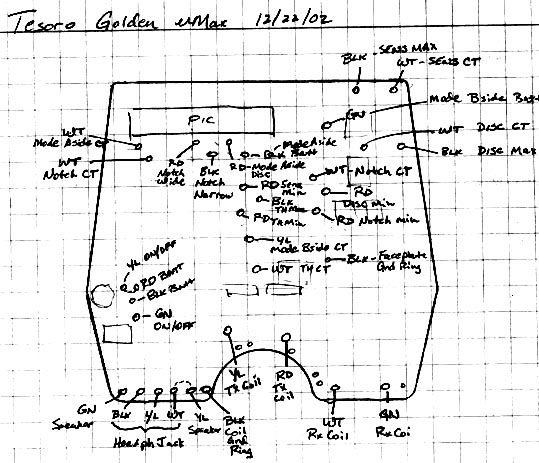 Tesoro Golden uMax 12/22/02
BLK - SENS MAX
WT - SENS CT
GN
Mode Bside Batt
PIC
WT
Mode Aside CT
WT
Notch CT
RD
Notch
Wide
BLK
Notch
Narrow
Mode Aside
BLK Batt
RD - Mode Aside
Disc
WT DISC CT
BLK DISC Max
WT - Notch CT
RD Sens
Min
BLK
TH Max
RD
TH Min
RD
DISC Min
RD Notch min
YL
Mode Bside CT
WT TH CT
BLK - Faceplate
Gnd Ring
YL ON/OFF
RD BATT
BLK Batt
GN
ON/OFF
YL
Tx Coil
RD
Tx
Coil
GN
Speaker
BLK
YL
WT
Headph Jack
YL
Speaker
BLK
Coil
Gnd
Ring
WT
Rx Coil
GN
Rx Coi